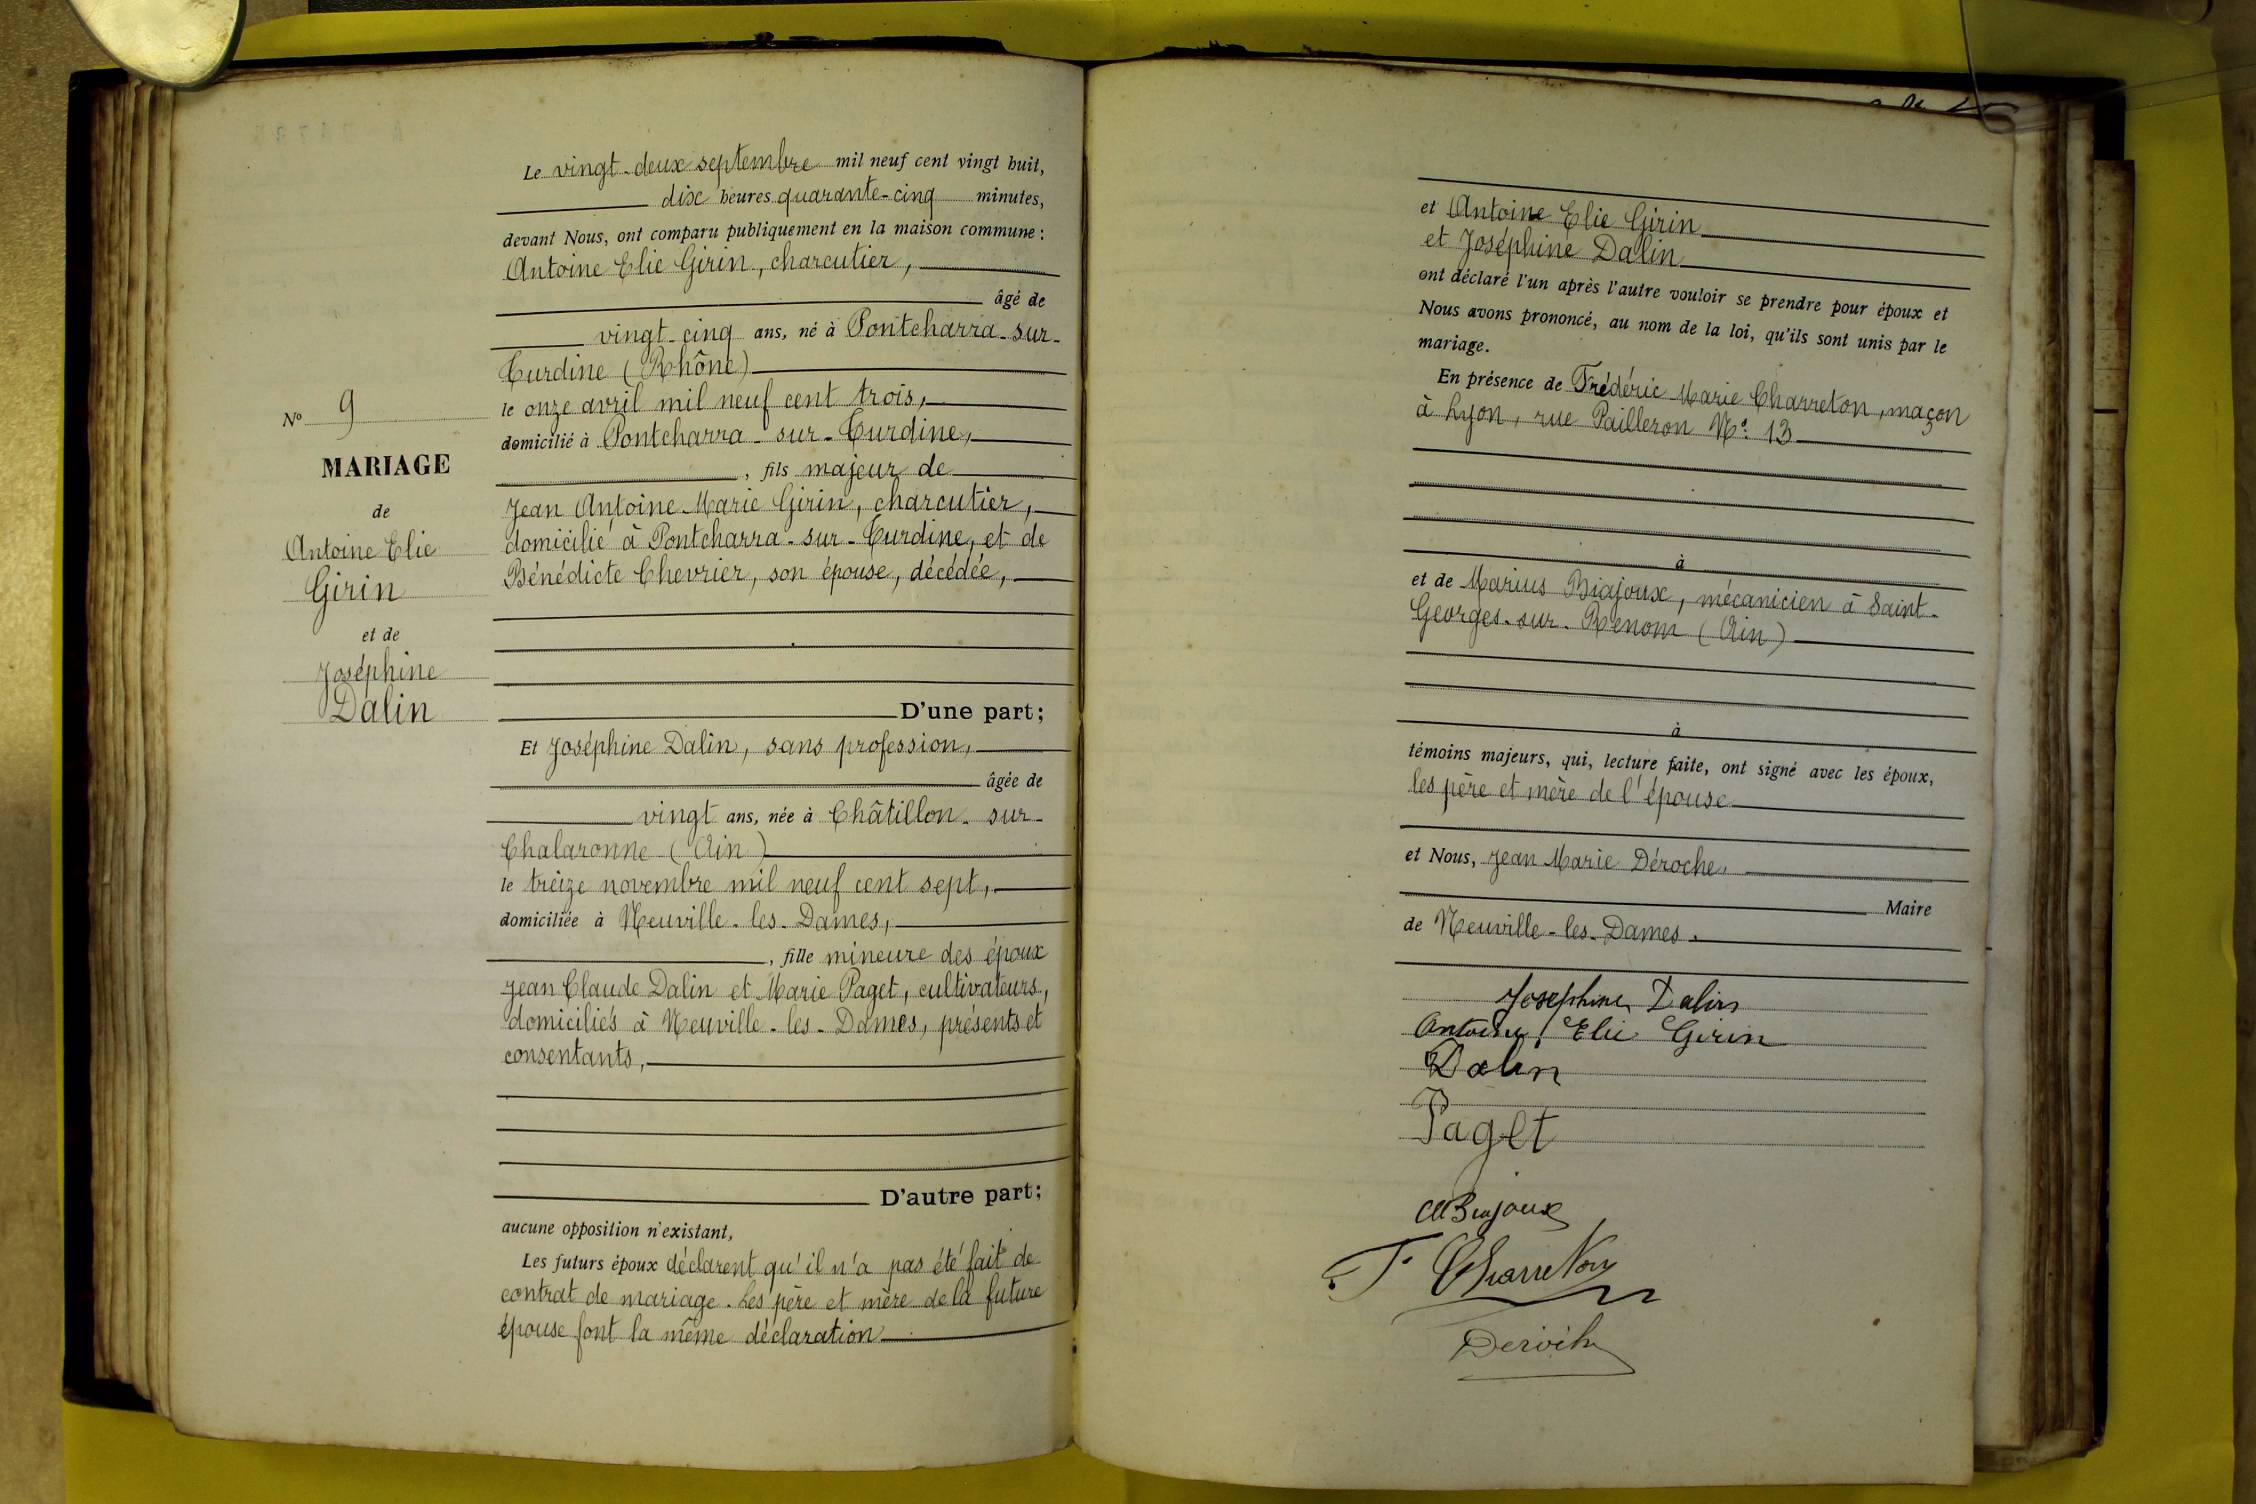 N° 9
MARIAGE
de
Antoine Elie
Girin
et de
Joséphine
Dalin
Le vingt-deux septembre mil neuf cent vingt huit,
dix heures quarante-cinq minutes,
devant Nous, ont comparu publiquement en la maison commune :
Antoine Elie Girin, charcutier,
âgé de
vingt-cinq ans, né à Pontcharra-sur-
Turdine (Rhône)
le onze avril mil neuf cent trois,
domicilié à Pontcharra-sur-Turdine,
, fils majeur de
Jean Antoine Marie Girin, charcutier,
domicilié à Pontcharra-sur-Turdine, et de
Bénédicte Chevrier, son épouse, décédée,
D'une part;
Et Joséphine Dalin, sans profession,
âgée de
vingt ans, née à Châtillon-sur-
Chalaronne (Ain)
le treize novembre mil neuf cent sept,
domiciliée à Neuville-les-Dames,
, fille mineure des époux
Jean Claude Dalin et Marie Paget, cultivateurs,
domiciliés à Neuville-les-Dames, présents et
consentants,
D'autre part;
aucune opposition n'existant,
Les futurs époux déclarent qu'il n'a pas été fait de
contrat de mariage. Les père et mère de la future
épouse font la même déclaration
et Antoine Elie Girin
et Joséphine Dalin
ont déclaré l'un après l'autre vouloir se prendre pour époux et
Nous avons prononcé, au nom de la loi, qu'ils sont unis par le
mariage.
En présence de Frédéric Marie Charreton, maçon
à Lyon, rue Pailleron N° 13
à
et de Marius Biajoux, mécanicien à Saint-
Georges-sur-Renom (Ain)
à
témoins majeurs, qui, lecture faite, ont signé avec les époux,
les père et mère de l'épouse
et Nous, Jean Marie Déroche,
Maire
de Neuville-les-Dames.
Josephine Dalin
Antoine Elie Girin
Dalin
Paget
Biajoux
F Charreton
Deroche